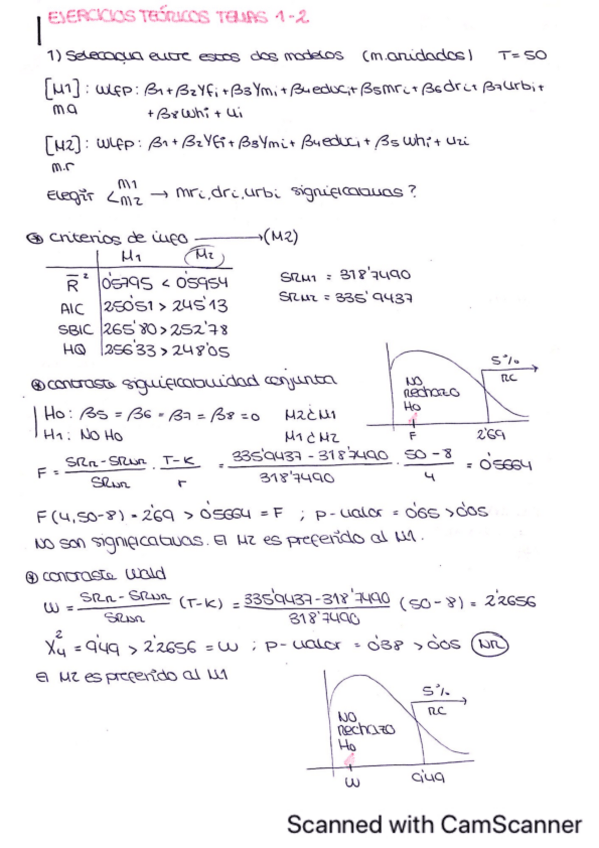 EJERCICIOS TEÓRICOS TEMAS 1-2
1) Selecciona entre estos dos modelos (m. anidados) T=50
[M1]: WLFP: β1+β2Yfi+β3Ymi+β4educi+β5mri+β6dri+β7urbi+
ma +β8Whi+ui
[M2]: WLFP: β1+β2Yfi+β3Ymi+β4educi+β5Whi+u2i
m.r
Elegir < M1 M2 → mri, dri, urbi significativas?
* criterios de info → (M2)
M1 M2
R̄² 0'5795 < 0'5954 SRM1 = 318'7490
AIC 250'51 > 245'13 SRM2 = 335'9437
SBIC 265'80 > 252'78
HQ 256'33 > 248'05
* contraste significatividad conjunta
H0: β5 = β6 = β7 = β8 = 0 M2 ≤ M1
H1: NO H0 M1 ≤ M2
NO
rechazo
H0
F 2'69
5%
RC
F = SRR - SRNR / SRNR · T-K / r = 335'9437 - 318'7490 / 318'7490 · 50-8 / 4 = 0'5664
F(4,50-8) = 2'69 > 0'5664 = F ; p-valor = 0'65 > 0'05
NO son significativas. El M2 es preferido al M1.
* contraste Wald
W = SRR - SRNR / SRNR (T-K) = 335'9437-318'7490 / 318'7490 (50-8) = 2'2656
X²4 = 9'49 > 2'2656 = W ; p-valor = 0'38 > 0'05 (NR)
el M2 es preferido al M1
NO
rechazo
H0
W 9'49
5%
RC
Scanned with CamScanner